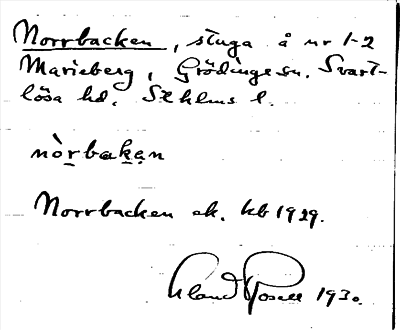 Norrbacken, stuga å nr 1-2
Marieberg, Grödinge sn. Svart-
lösa hd. Sthlms l.
nòrbakən
Norrbacken ek. kb 1929.
Rosell 1930.